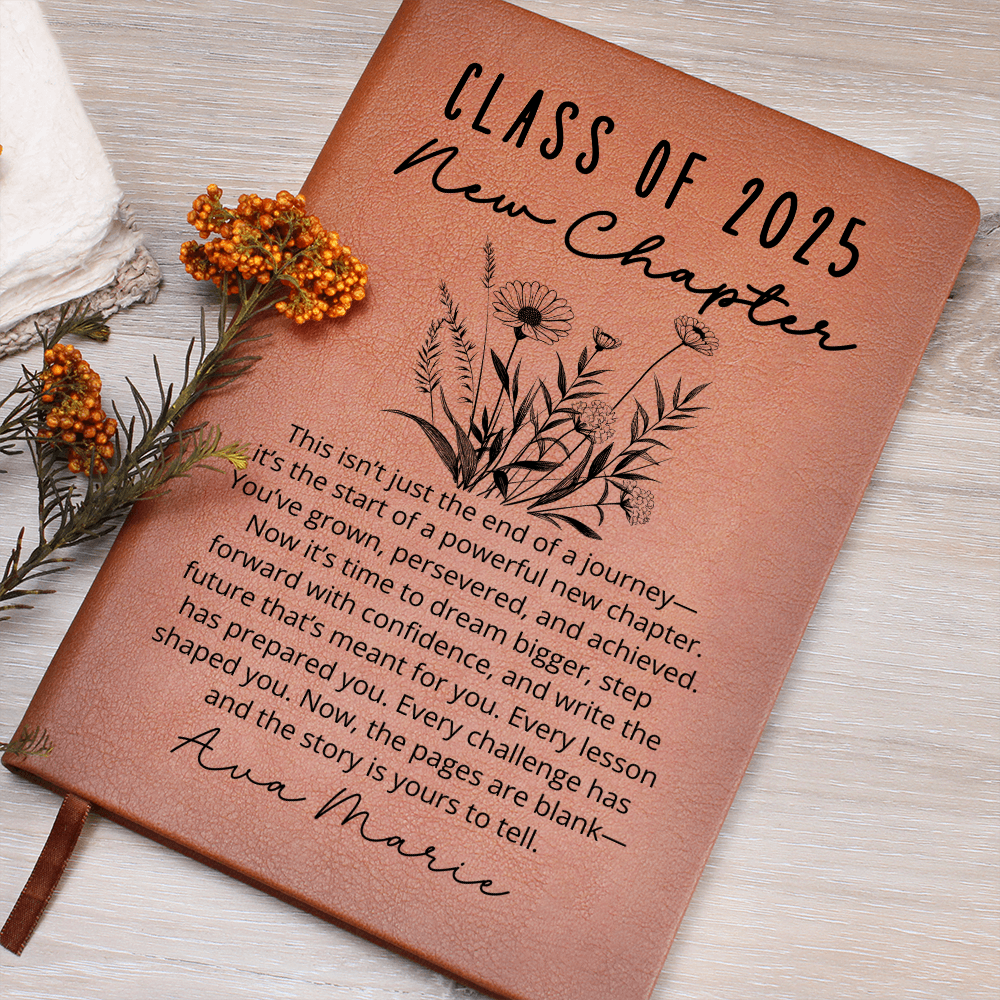 CLASS OF 2025
New Chapter
This isn't just the end of a journey—
it's the start of a powerful new chapter.
You've grown, persevered, and achieved.
Now it's time to dream bigger, step
forward with confidence, and write the
future that's meant for you. Every lesson
has prepared you. Every challenge has
shaped you. Now, the pages are blank—
and the story is yours to tell.
Ava Marie